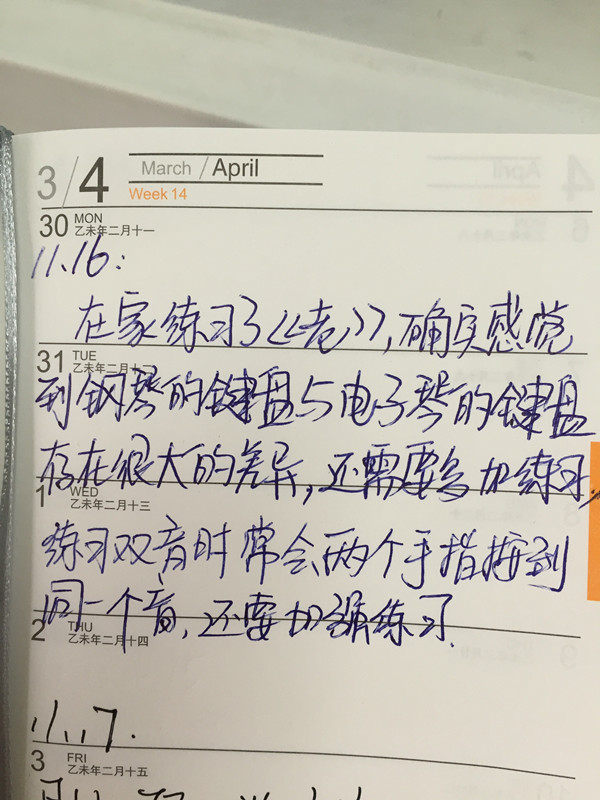 3/4 March / April
Week 14
30 MON
乙未年二月十一
11.16:
在家练习了《老》,确实感觉
31 TUE
乙未年二月十
到钢琴的键盘与电子琴的键盘
存在很大的差异,还需要多加练习,
1 WED
乙未年二月十三
练习双音时常会两个手指按到
同一个音,还要加强练习.
2 THU
乙未年二月十四
11.17.
3 FRI
乙未年二月十五